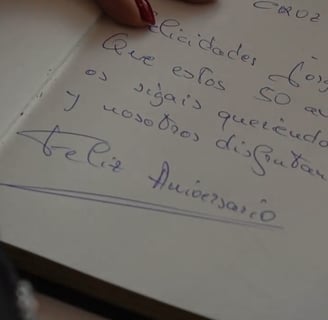 CRUZ
elicidades
Que estos 50 a
os sigais queriendo
y nosotros disfrutan
Feliz Aniversario